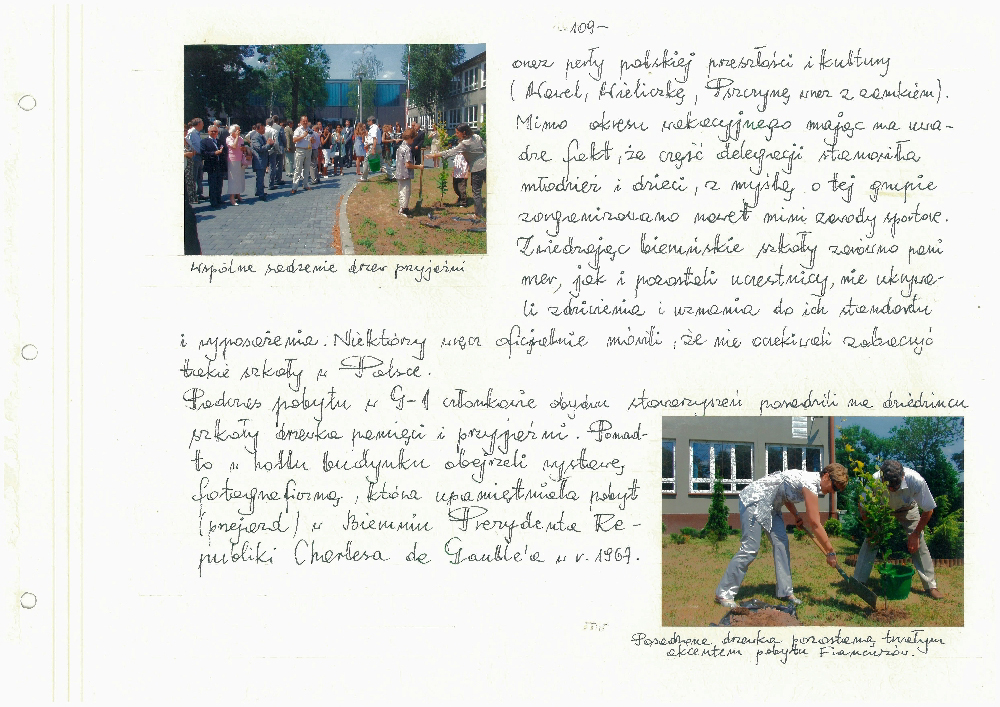 -109-
oraz perły polskiej przeszłości i kultury
(Wawel, Wieliczkę, Pszczynę wraz z zamkiem).
Mimo okresu wakacyjnego mając na uwa-
dze fakt, że część delegacji stanowiła
młodzież i dzieci, z myślą o tej grupie
zorganizowano nawet mini zawody sportowe.
Zwiedzając bieruńskie szkoły zarówno pani
mer, jak i pozostali uczestnicy, nie ukrywa-
li zdziwienia i uznania do ich standardu
i wyposażenia. Niektórzy wręcz oficjalnie mówili, że nie oczekiwali zobaczyć
takie szkoły w Polsce.
Wspólne sadzenie drzew przyjaźni
Podczas pobytu w G-1 członkowie obydwu stowarzyszeń posadzili na dziedzińcu
szkoły drzewka pamięci i przyjaźni. Ponad-
to w hallu budynku obejrzeli wystawę
fotograficzną, która upamiętniała pobyt
(przejazd) w Bieruniu Prezydenta Re-
publiki Charlesa de Gaulle'a w r. 1967.
Posadzone drzewka pozostaną trwałym
akcentem pobytu Francuzów.